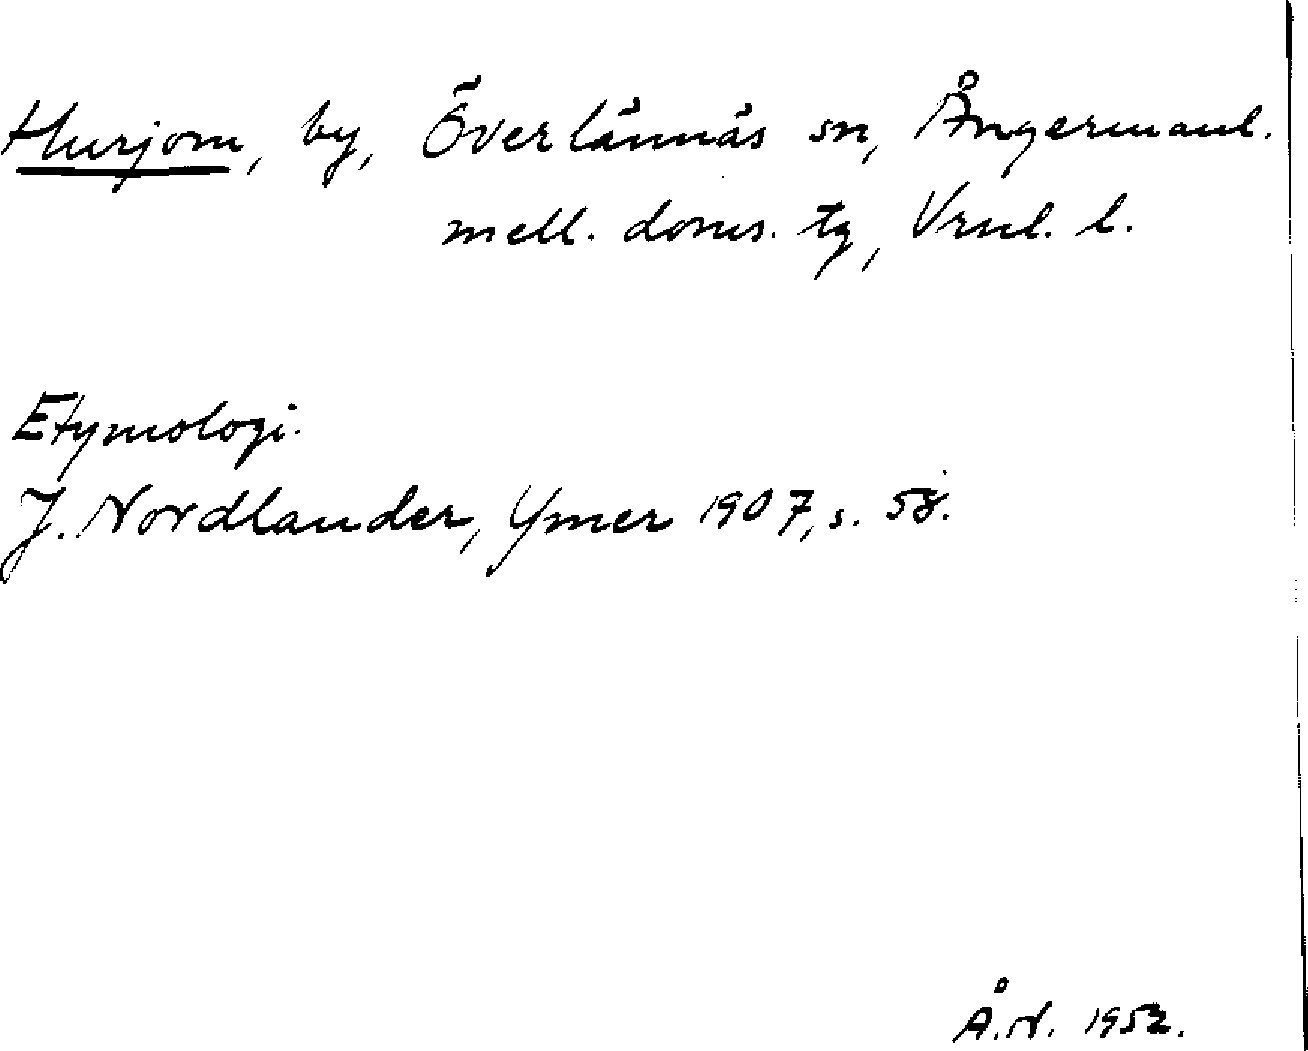 Hurjom, by, Överlännäs sn, Ångermanl.
mell. doms. tg, Vrnl. l.
Etymologi.
J. Nordlander, Ymer 1907, s. 58.
Å. N. 1952.